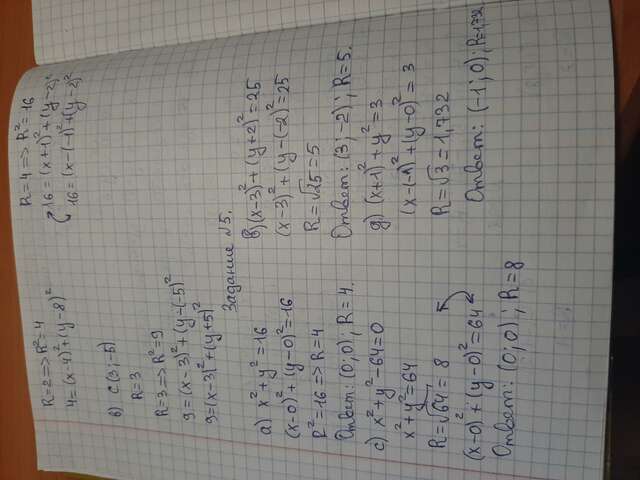 R=2=>R²=4
4=(x-4)²+(y-8)²
R=4=>R²=16
16=(x+1)²+(y-2)²
16=(x-(-1)²+(y-2)²
в) C(3;-5)
R=3
R=3=>R²=9
9=(x-3)²+(y-(-5)²
9=(x-3)²+(y+5)²
Задание №5.
а) x²+y²=16
(x-0)²+(y-0)²=16
R²=16=>R=4
Ответ: (0;0), R=4.
с) x²+y²-64=0
x²+y²=64
R=√64=8
(x-0)²+(y-0)²=64
Ответ: (0;0); R=8
в) (x-3)²+(y+2)²=25
(x-3)²+(y-(-2)²=25
R=√25=5
Ответ: (3;-2); R=5.
д) (x+1)²+y²=3
(x-(-1)²+(y-0)²=3
R=√3=1,732
Ответ: (-1;0); R=1,732